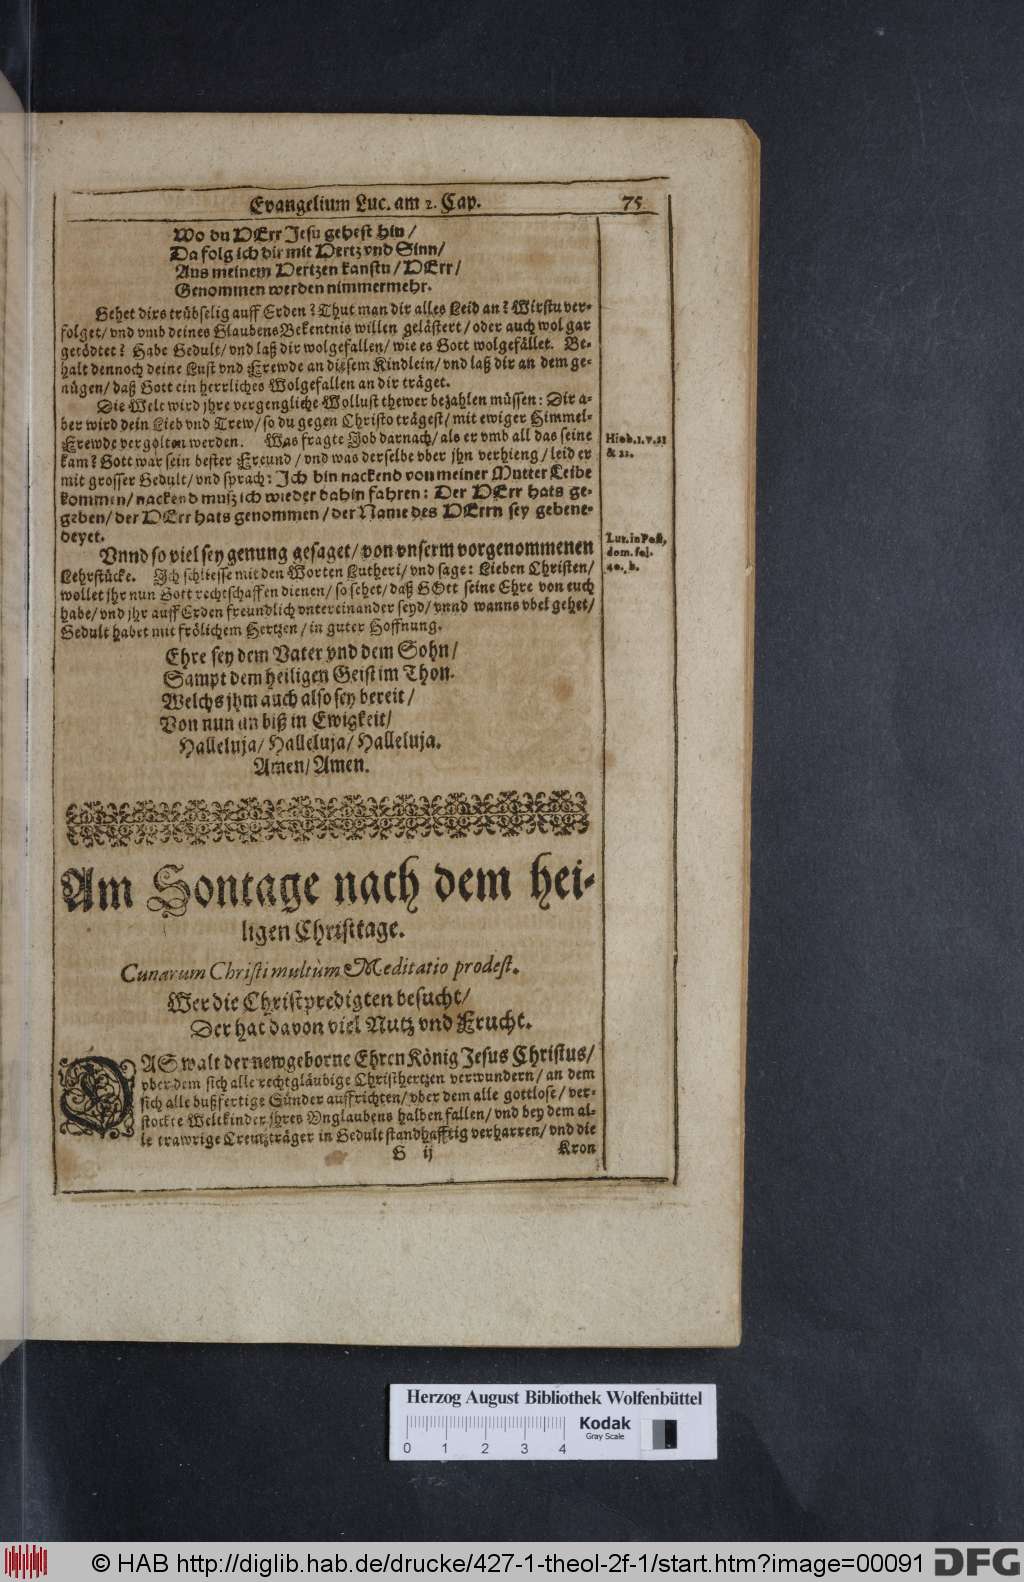 Evangelium Luc. am 2. Cap. 75
Wo du HErr Jesu gehest hin /
Da folg ich dir mit Hertz vnd Sinn /
Aus meinem Hertzen kanstu / HErr /
Genommen werden nimmermehr.
Gehet dirs trübselig auff Erden? Thut man dir alles Leid an? Wirstu ver-
folget / vnd vmb deines Glaubens Bekentnis willen gelästert / oder auch wol gar
getödtet? Habe Gedult / vnd laß dir wolgefallen / wie es Gott wolgefället. Be-
halt dennoch deine Lust vnd Frewde an diesem Kindlein / vnd laß dir an dem ge-
nügen / daß Gott ein herrliches Wolgefallen an dir träget.
Die Welt wird jhre vergengliche Wollust thewer bezahlen müssen: Dir a-
ber wird dein Lieb vnd Trew / so du gegen Christo trägest / mit ewiger Himmel-
Frewde vergolten werden. Was fragte Job darnach / als er vmb all das seine
kam? Gott war sein bester Freund / vnd was derselbe vber jhn verhieng / leid er
mit grosser Gedult / vnd sprach: Ich bin nackend von meiner Mutter Leibe
kommen / nackend muß ich wieder dahin fahren: Der HErr hats ge-
geben / der HErr hats genommen / der Name des HErrn sey gebene-
deyet.
Hiob. 1. v. 21
& 22.
Vnnd so viel sey genung gesaget / von vnserm vorgenommenen
Lehrstücke. Ich schliesse mit den Worten Lutheri / vnd sage: Lieben Christen /
wollet jhr nun Gott rechtschaffen dienen / so sehet / daß GOtt seine Ehre von euch
habe / vnd jhr auff Erden freundlich vntereinander seyd / vnnd wanns vbel gehet /
Gedult habet mit frölichem Hertzen / in guter Hoffnung.
Lut. in Post.
dom. fol.
40. b.
Ehre sey dem Vater vnd dem Sohn /
Sampt dem heiligen Geist im Thon.
Welchs jhm auch also sey bereit /
Von nun an biß in Ewigkeit /
Halleluja / Halleluja / Halleluja.
Amen / Amen.
Am Sontage nach dem hei-
ligen Christtage.
Cunarum Christi multùm Meditatio prodest.
Wer die Christpredigten besucht /
Der hat davon viel Nutz vnd Frucht.
DAS walt der newgeborne Ehren König Jesus Christus /
vber dem sich alle rechtgläubige Christhertzen verwundern / an dem
sich alle bußfertige Sünder auffrichten / vber dem alle gottlose / ver-
stockte Weltkinder jhres Vnglaubens halben fallen / vnd bey dem al-
le trawrige Creutzträger in Gedult standhafftig verharren / vnd die
G ij Kron
Herzog August Bibliothek Wolfenbüttel
0 1 2 3 4
Kodak
Gray Scale
© HAB http://diglib.hab.de/drucke/427-1-theol-2f-1/start.htm?image=00091
DFG